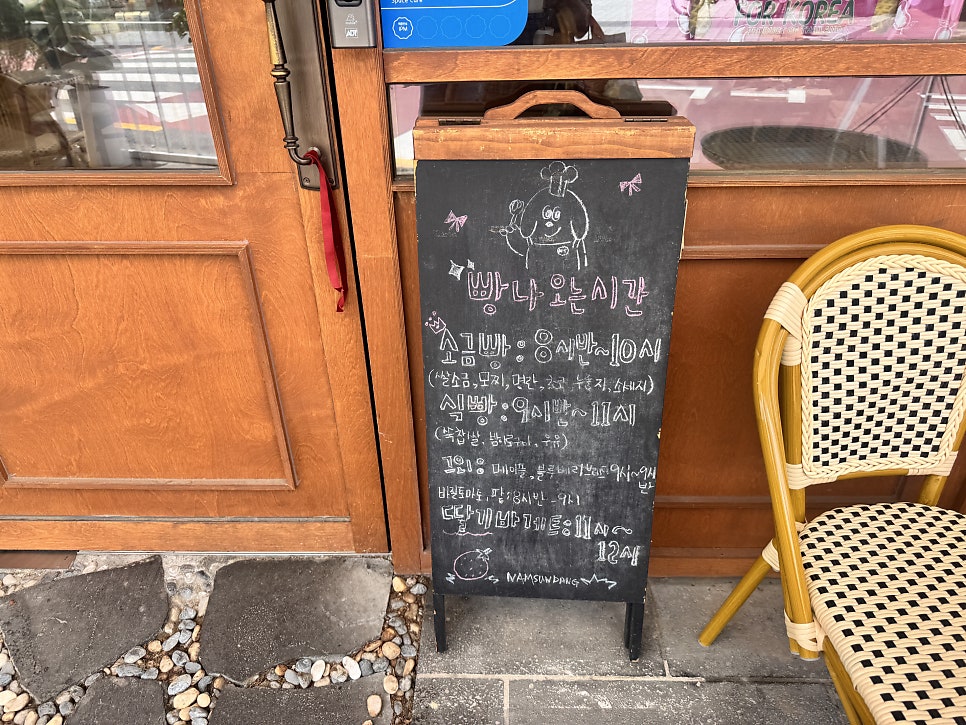 Space Care
ADT
FOR KOREA
빵 나오는 시간
소금빵 : 8시반~10시
(쌀소금, 모찌, 명란, 초코, 누룽지, 소세지)
식빵 : 9시반~11시
(쑥찹쌀, 우유)
메이플, 블루베리 9시~9시
반
바질토마토, 팥 : 8시반~9시
딸기바게트 : 11시~
12시
NAMSUNDANG